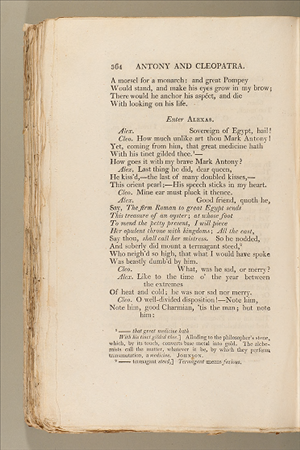 364 ANTONY AND CLEOPATRA.
A morsel for a monarch: and great Pompey
Would stand, and make his eyes grow in my brow;
There would he anchor his aspéct, and die
With looking on his life.
Enter ALEXAS.
Alex. Sovereign of Egypt, hail!
Cleo. How much unlike art thou Mark Antony!
Yet, coming from him, that great medicine hath
With his tinct gilded thee.¹—
How goes it with my brave Mark Antony?
Alex. Last thing he did, dear queen,
He kiss'd,—the last of many doubled kisses,—
This orient pearl;—His speech sticks in my heart.
Cleo. Mine ear must pluck it thence.
Alex. Good friend, quoth he,
Say, The firm Roman to great Egypt sends
This treasure of an oyster; at whose foot
To mend the petty present, I will piece
Her opulent throne with kingdoms; All the east,
Say thou, shall call her mistress. So he nodded,
And soberly did mount a termagant steed,²
Who neigh'd so high, that what I would have spoke
Was beastly dumb'd by him.
Cleo. What, was he sad, or merry?
Alex. Like to the time o' the year between
the extremes
Of heat and cold; he was nor sad nor merry.
Cleo. O well-divided disposition!—Note him,
Note him, good Charmian, 'tis the man; but note
him:
¹ —— that great medicine hath
With his tinct gilded thee.] Alluding to the philosopher's stone,
which, by its touch, converts base metal into gold. The alche-
mists call the matter, whatever it be, by which they perform
transmutation, a medicine. JOHNSON.
² —— termagant steed,] Termagant means furious.